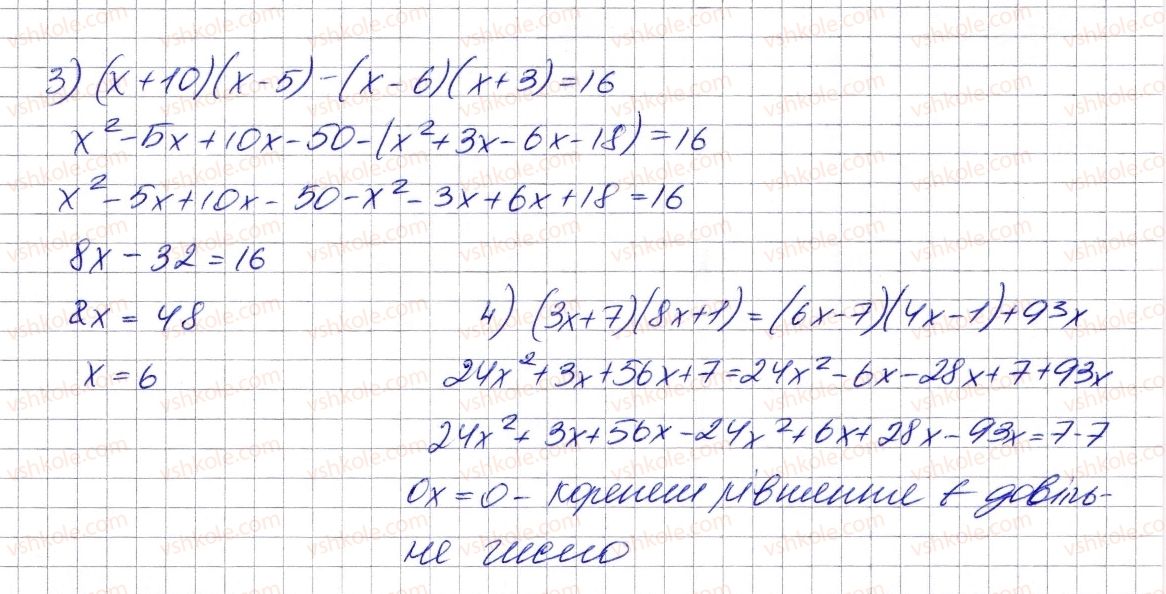 3) (x+10)(x-5)-(x-6)(x+3)=16
x²-5x+10x-50-(x²+3x-6x-18)=16
x²-5x+10x-50-x²-3x+6x+18=16
8x-32=16
8x=48
x=6
4) (3x+7)(8x+1)=(6x-7)(4x-1)+93x
24x²+3x+56x+7=24x²-6x-28x+7+93x
24x²+3x+56x-24x²+6x+28x-93x=7-7
0x=0 - коренем рівняння є довіль-
не число